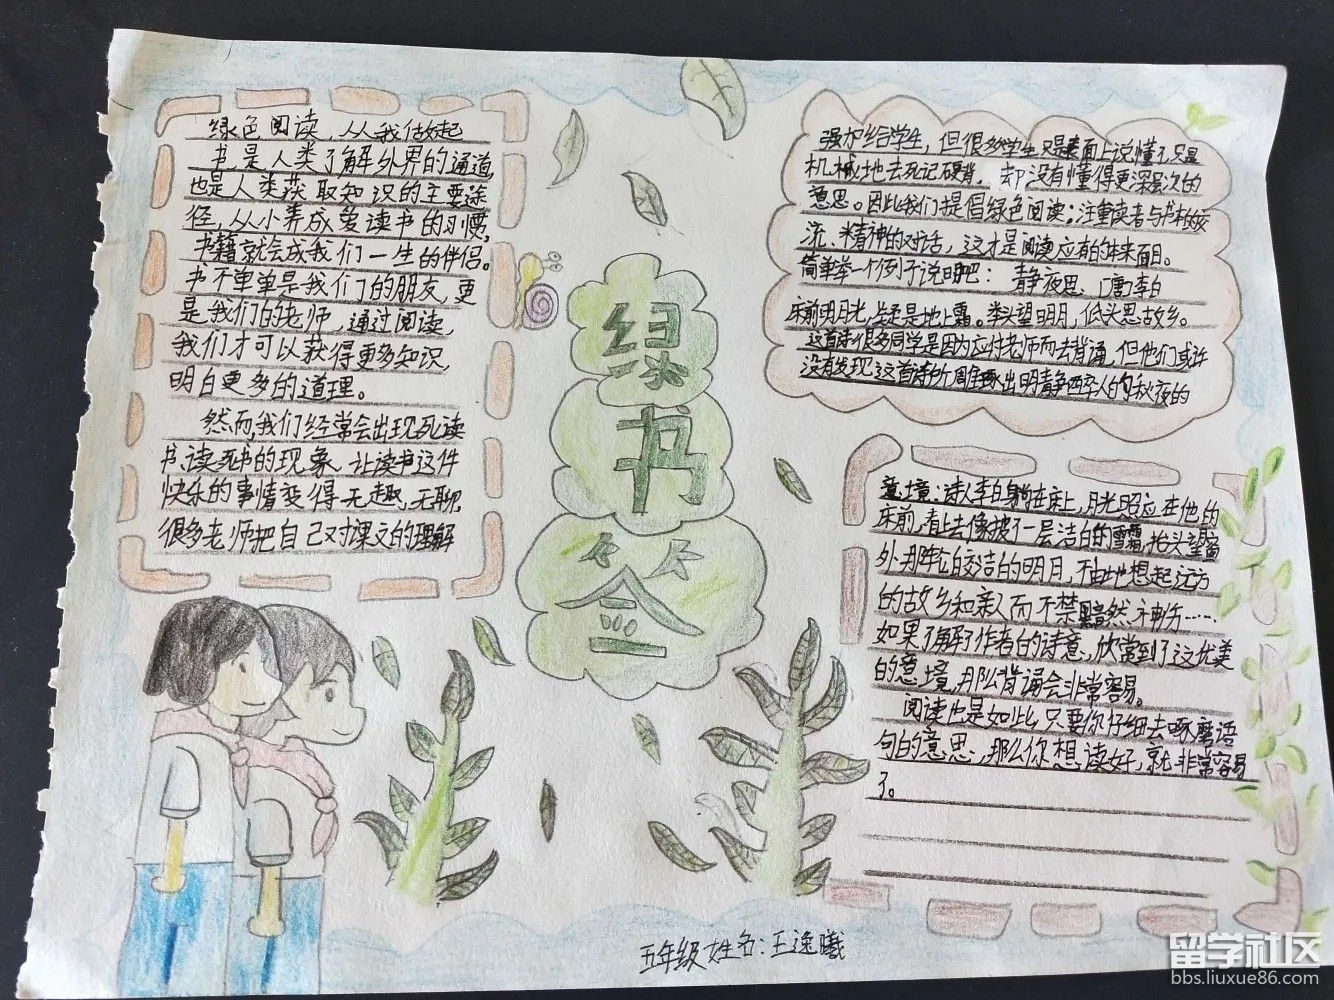 绿色阅读,从我做起
书是人类了解外界的通道,
也是人类获取知识的主要途
径,从小养成爱读书的习惯,
书籍就会成我们一生的伴侣。
书不单单是我们的朋友,更
是我们的老师,通过阅读,
我们才可以获得更多知识,
明白更多的道理。
然而,我们经常会出现死读
书、读死书的现象,让读书这件
快乐的事情变得无趣、无聊,
很多老师把自己对课文的理解
绿
书
签
强加给学生,但很多学生只是表面上说懂了,只是
机械地去死记硬背,却没有懂得更深层次的
意思。因此我们提倡绿色阅读;注重读者与书本的交
流、精神的对话,这才是阅读应有的本来面目。
简单举一个例子说明吧:静夜思、[唐]李白
床前明月光,疑是地上霜。举头望明月,低头思故乡。
这首诗很多同学是因为应付老师而去背诵,但他们或许
没有发现这首诗所雕琢出明静醉人的秋夜的
意境:诗人李白躺在床上,月光照应在他的
床前,看上去像披了一层洁白的雪霜,抬头望窗
外那轮皎洁的明月,不由地想起远方
的故乡和亲人而不禁黯然神伤……
如果了解了作者的诗意,欣赏到了这优美
的意境,那么背诵会非常容易。
阅读也是如此,只要你仔细去啄磨语
句的意思,那么你想读好,就非常容易
了。
五年级 姓名:王逸曦
留学社区
bbs.liuxue86.com